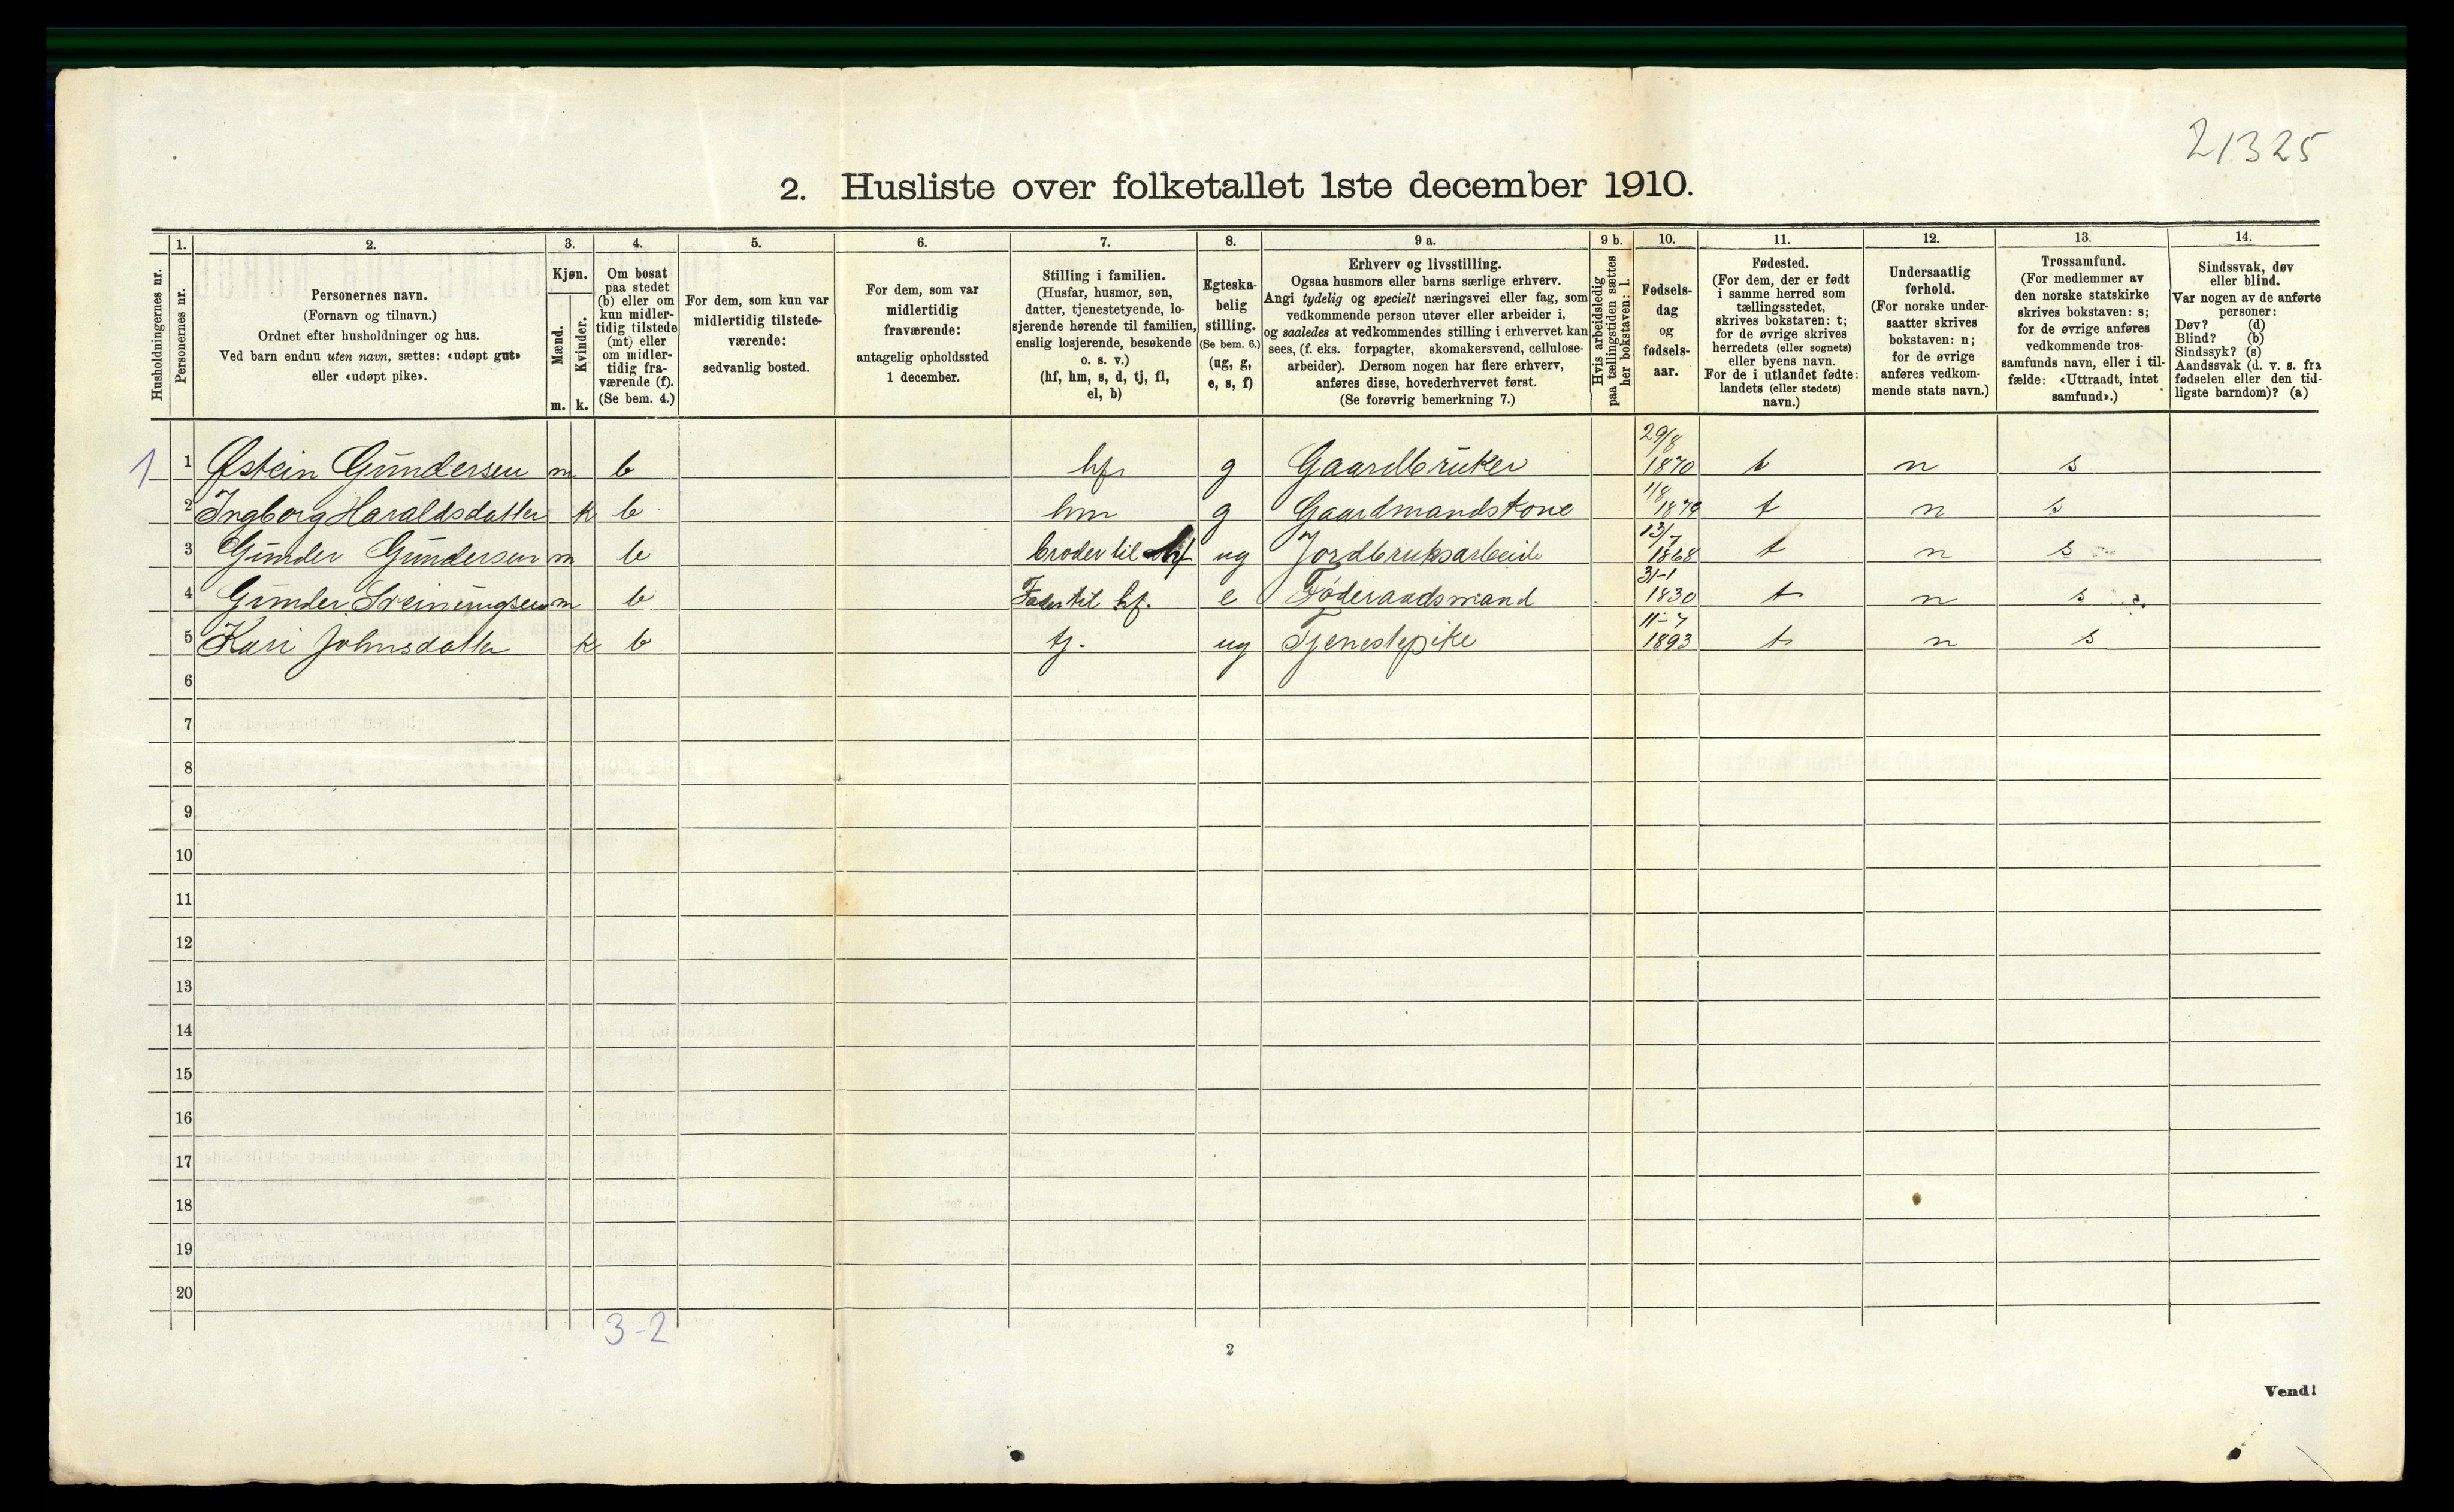 21325
2. Husliste over folketallet 1ste december 1910.
Husholdningernes nr.
1.
Personernes nr.
2.
Personernes navn.
(Fornavn og tilnavn.)
Ordnet efter husholdninger og hus.
Ved barn endnu uten navn, sættes: «udøpt gut»
eller «udøpt pike».
3.
Kjøn.
Mænd.
Kvinder.
m. k.
4.
Om bosat
paa stedet
(b) eller om
kun midler-
tidig tilstede
(mt) eller
om midler-
tidig fra-
værende (f).
(Se bem. 4.)
5.
For dem, som kun var
midlertidig tilstede-
værende:
sedvanlig bosted.
6.
For dem, som var
midlertidig
fraværende:
antagelig opholdssted
1 december.
7.
Stilling i familien.
(Husfar, husmor, søn,
datter, tjenestetyende, lo-
sjerende hørende til familien,
enslig losjerende, besøkende
o. s. v.)
(hf, hm, s, d, tj, fl,
el, b)
8.
Egteska-
belig
stilling.
(Se bem. 6.)
(ug, g,
e, s, f)
9 a.
Erhverv og livsstilling.
Ogsaa husmors eller barns særlige erhverv.
Angi tydelig og specielt næringsvei eller fag, som
vedkommende person utøver eller arbeider i,
og saaledes at vedkommendes stilling i erhvervet kan
sees, (f. eks. forpagter, skomakersvend, cellulose-
arbeider). Dersom nogen har flere erhverv,
anføres disse, hovederhvervet først.
(Se forøvrig bemerkning 7.)
9 b.
Hvis arbeidsledig
paa tællingstiden sættes
her bokstaven: l.
10.
Fødsels-
dag
og
fødsels-
aar.
11.
Fødested.
(For dem, der er født
i samme herred som
tællingsstedet,
skrives bokstaven: t;
for de øvrige skrives
herredets (eller sognets)
eller byens navn.
For de i utlandet fødte:
landets (eller stedets)
navn.)
12.
Undersaatlig
forhold.
(For norske under-
saatter skrives
bokstaven: n;
for de øvrige
anføres vedkom-
mende stats navn.)
13.
Trossamfund.
(For medlemmer av
den norske statskirke
skrives bokstaven: s;
for de øvrige anføres
vedkommende tros-
samfunds navn, eller i til-
fælde: «Uttraadt, intet
samfund».)
14.
Sindssvak, døv
eller blind.
Var nogen av de anførte
personer:
Døv? (d)
Blind? (b)
Sindssyk? (s)
Aandssvak (d. v. s. fra
fødselen eller den tid-
ligste barndom)? (a)
1 1 Østein Gundersen m b hf g Gaardbruker 29/8 1870 t n s
2 Ingborg Haraldsdatter k b hm g Gaardmandskone 1/8 1879 t n s
3 Gunder Gundersen m b broder til hf ug Jordbruksarbeide 13/7 1868 t n s
4 Gunder m b Fader til hf. e Føderaadsmand 31-1 1830 t n s
5 Kari Johnsdatter k b tj. ug Tjenestepike 11-7 1893 t n s
6
7
8
9
10
11
12
13
14
15
16
17
18
19
20
3-2
2
Vend!